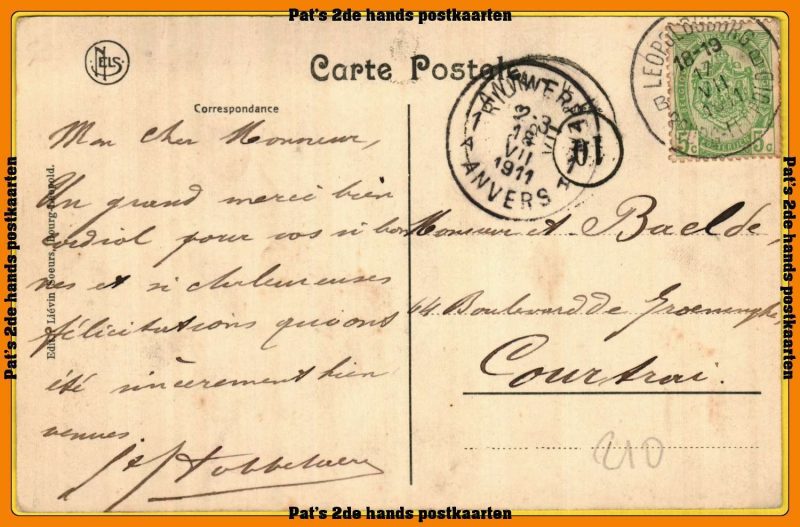 Pat's 2de hands postkaarten
NELS
Carte Postale
Correspondance
LEOPOLDSBURG
18-19
17
VII
1911
B
5c 5c
ANTWERPEN
18
VII
1911
ANVERS
10
Mon cher Monsieur,
Un grand merci bien
cordial pour vos si bon
nes et si chaleureuses
félicitations qui ont
été sincèrement bien
venues
Monsieur A. Baelde,
44 Boulevard de Groeninghe,
Courtrai.
210
Edit. Liévin Soeurs, Bourg-Léopold.
Pat's 2de hands postkaarten
Pat's 2de hands postkaarten
Pat's 2de hands postkaarten